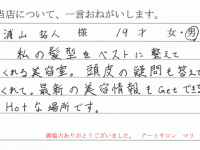 当店について、一言おねがいします。
浦山 拓人 様 19才 女・男
私の髪型をベストに整えて
くれる美容室。頭皮の疑問も答えて
くれて。最新の美容情報もGetできる
Hotな場所です。
御協力ありがとうございました。 アートサロン マリ